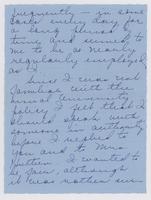 frequently - in some
cases every day for
a long period of
time and seemed to
me to be as nearly
regularly employed
as I.
Since I was not
familiar with the
usual University
policy I felt that I
should speak with
someone in authority
before I replied to
you and to Mrs.
I wanted to
be fair, although
it was rather an